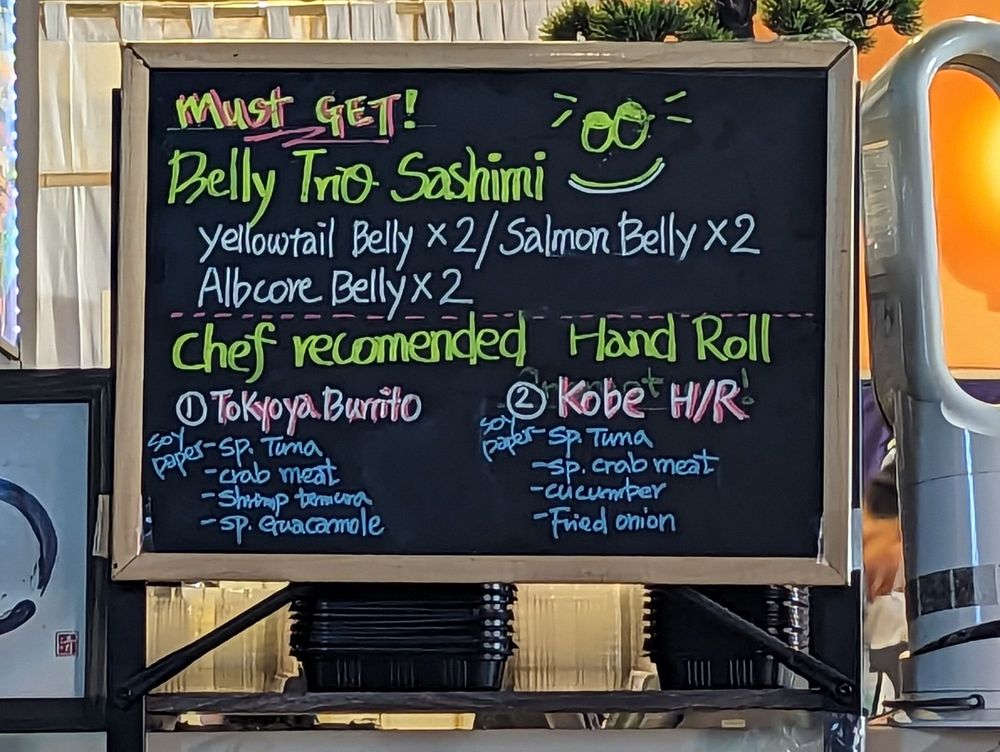 Must GET!
Belly Trio Sashimi
Yellowtail Belly x2/Salmon Belly x2
Albcore Belly x2
Chef recomended Hand Roll
① Tokyoya Burrito
soy paper
- sp. Tuna
- crab meat
- Shrimp temura
- sp. Guacamole
② Kobe H/R
soy paper
- sp. Tuna
- sp. crab meat
- cucumber
- Fried onion